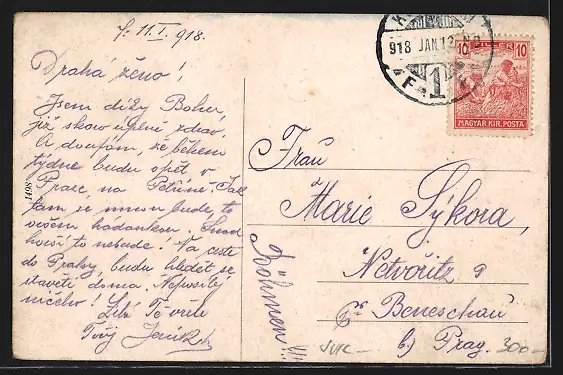 11. I. 918.
Drahá ženo!
Jsem díky Bohu,
již skoro úplně zdráv.
A doufám, že během
týdne budu opět v
Praze na
tam se mnou bude, to
ovšem hádankou. Snad
horší to nebude! Na cestě
do Prahy, budu hledět se
staviti doma. Neposílej
ničeho! Líbá Tě vřele
Tvůj
1498
918 JAN.12
1
10 FILLÉR 10
MAGYAR KIR. POSTA
Frau
Marie Sýkora,
Netvořitz 9
Beneschau
b) Prag.
Böhmen!!!
300